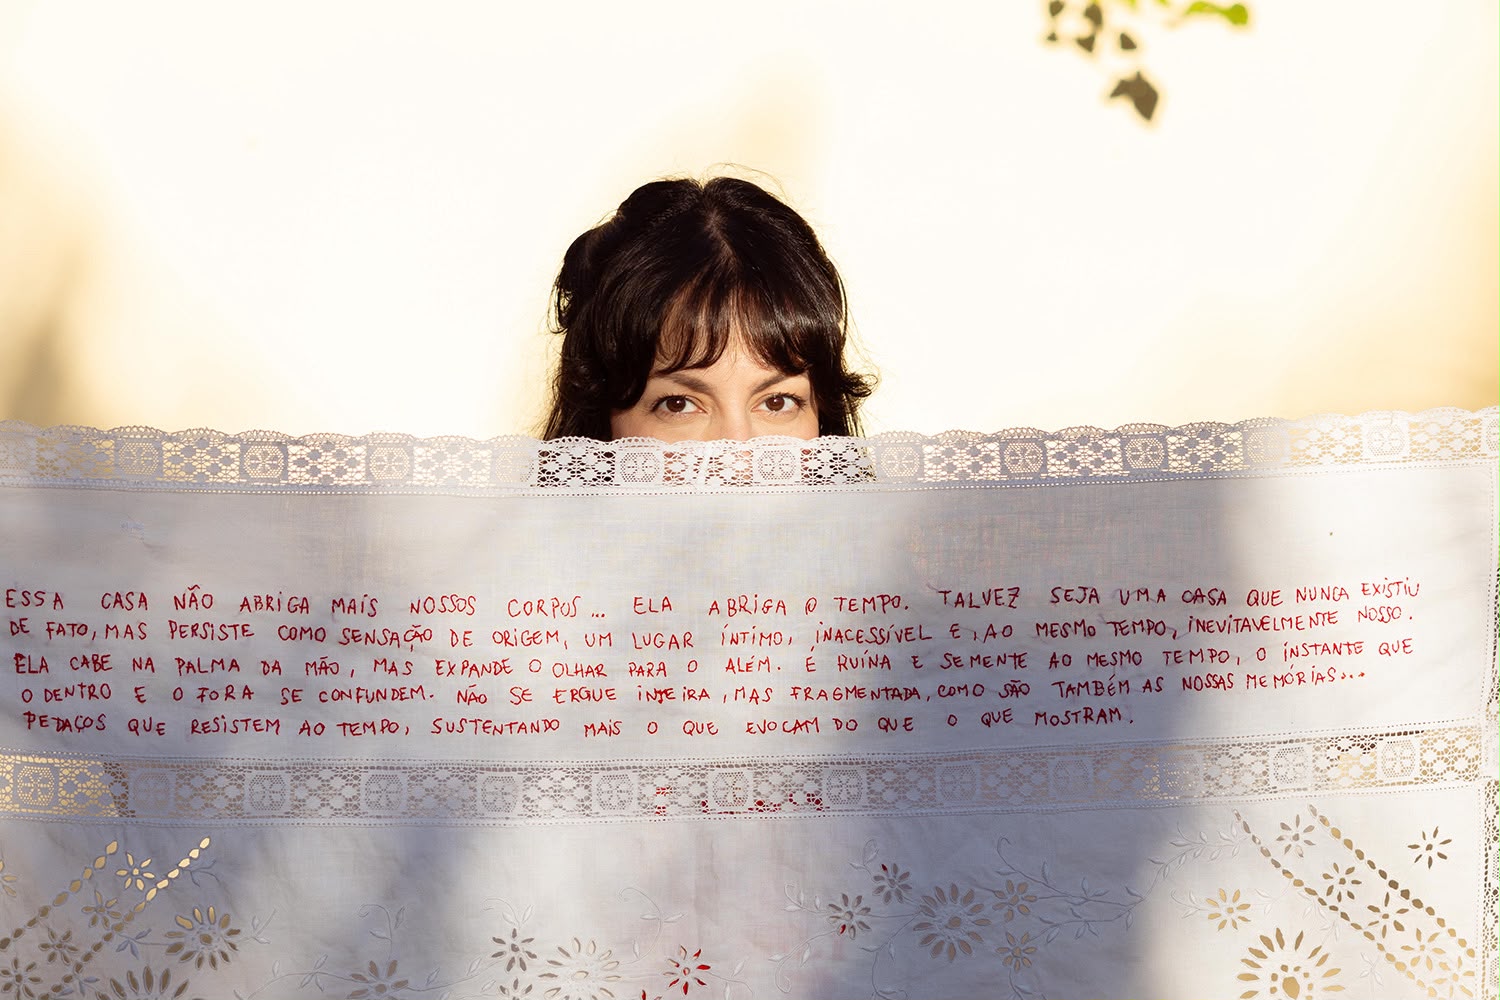 ESSA CASA NÃO ABRIGA MAIS NOSSOS CORPOS... ELA ABRIGA O TEMPO. TALVEZ SEJA UMA CASA QUE NUNCA EXISTIU
DE FATO, MAS PERSISTE COMO SENSAÇÃO DE ORIGEM, UM LUGAR ÍNTIMO, INACESSÍVEL E, AO MESMO TEMPO, INEVITAVELMENTE NOSSO.
ELA CABE NA PALMA DA MÃO, MAS EXPANDE O OLHAR PARA O ALÉM. É RUÍNA E SEMENTE AO MESMO TEMPO, O INSTANTE QUE
O DENTRO E O FORA SE CONFUNDEM. NÃO SE ERGUE INTEIRA, MAS FRAGMENTADA, COMO SÃO TAMBÉM AS NOSSAS MEMÓRIAS...
PEDAÇOS QUE RESISTEM AO TEMPO, SUSTENTANDO MAIS O QUE EVOCAM DO QUE O QUE MOSTRAM.